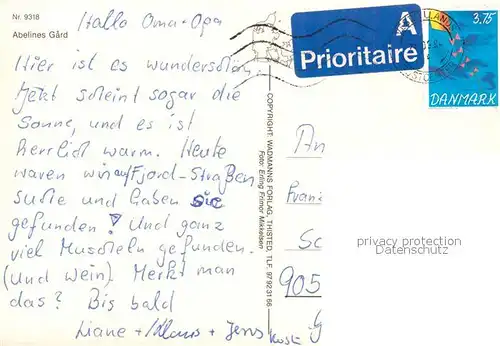 Nr. 9318
Abelines Gård
Hallo Oma + Opa
Hier ist es wunderschön.
Jetzt scheint sogar die
Sonne, und es ist
herrlich warm. Heute
waren wir auf Fjord-Straßen
suche und haben sie
gefunden! Und ganz
viel Muscheln gefunden.
(und Wein). Merkt man
das? Bis bald
Liane + Klaus + Jens
COPYRIGHT: WADMANNS FORLAG, THISTED, TLF. 97 92 31 66
Foto: Erling Frimor Mikkelsen
A
Prioritaire
3,75
DANMARK
An
Franz
905
privacy protection
Datenschutz